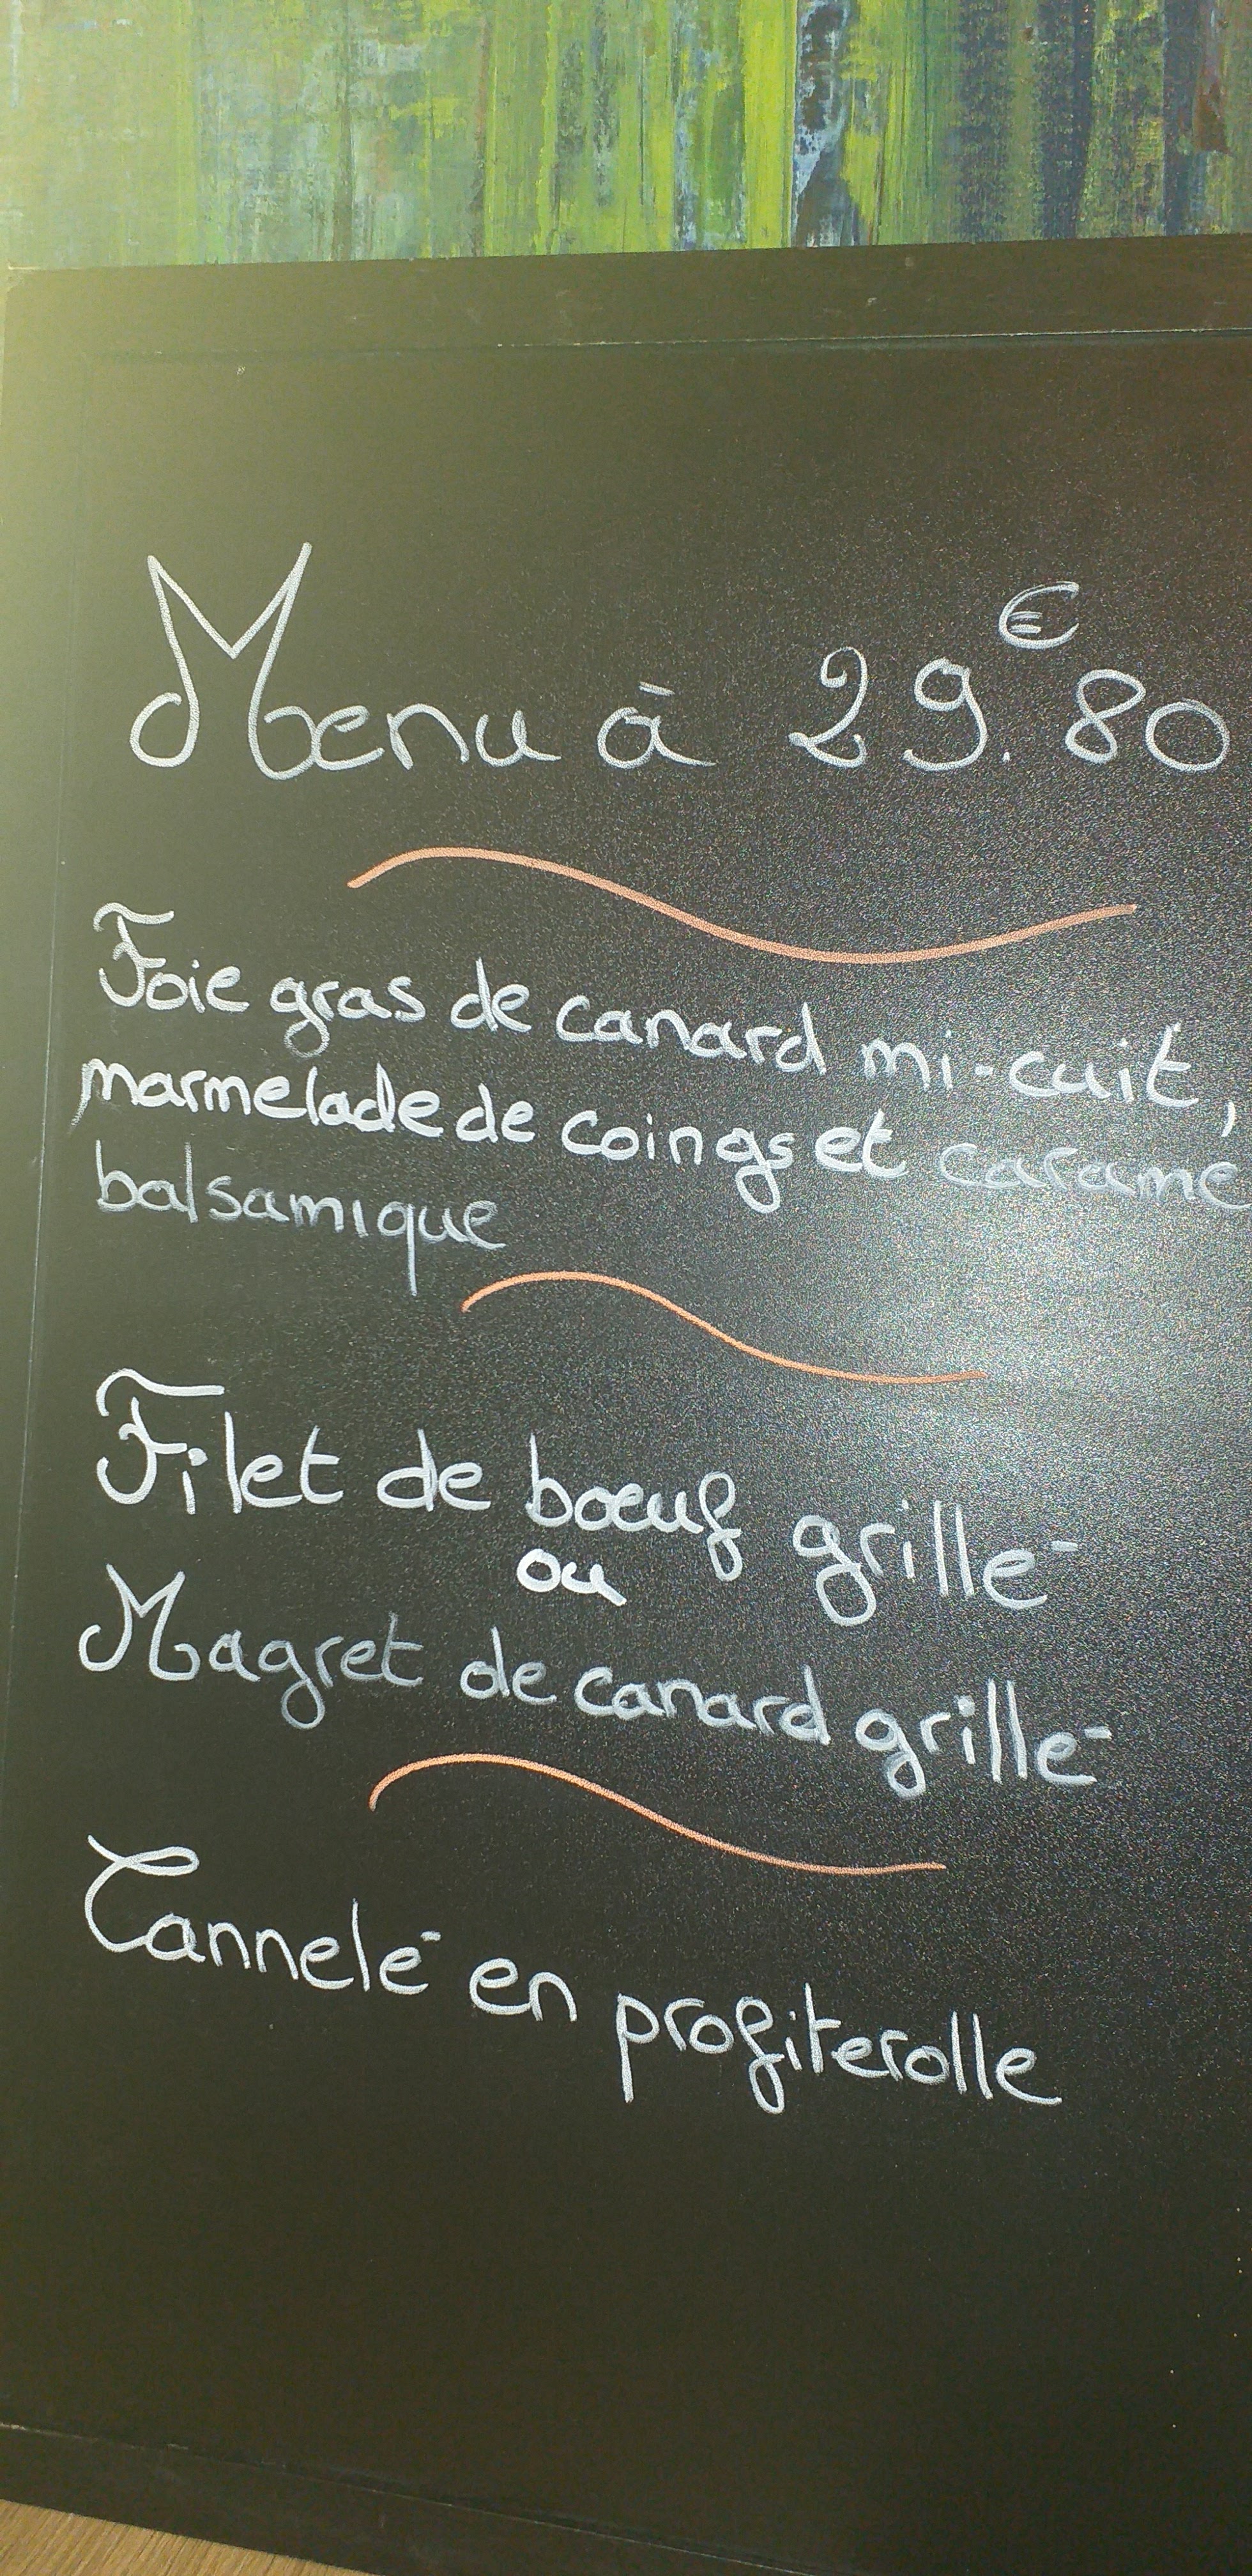 Menu à 29.€80
Foie gras de canard mi-cuit,
marmelade de coings et carame
balsamique
Filet de bœuf grillé
ou
Magret de canard grillé
Cannelé en profiterolle